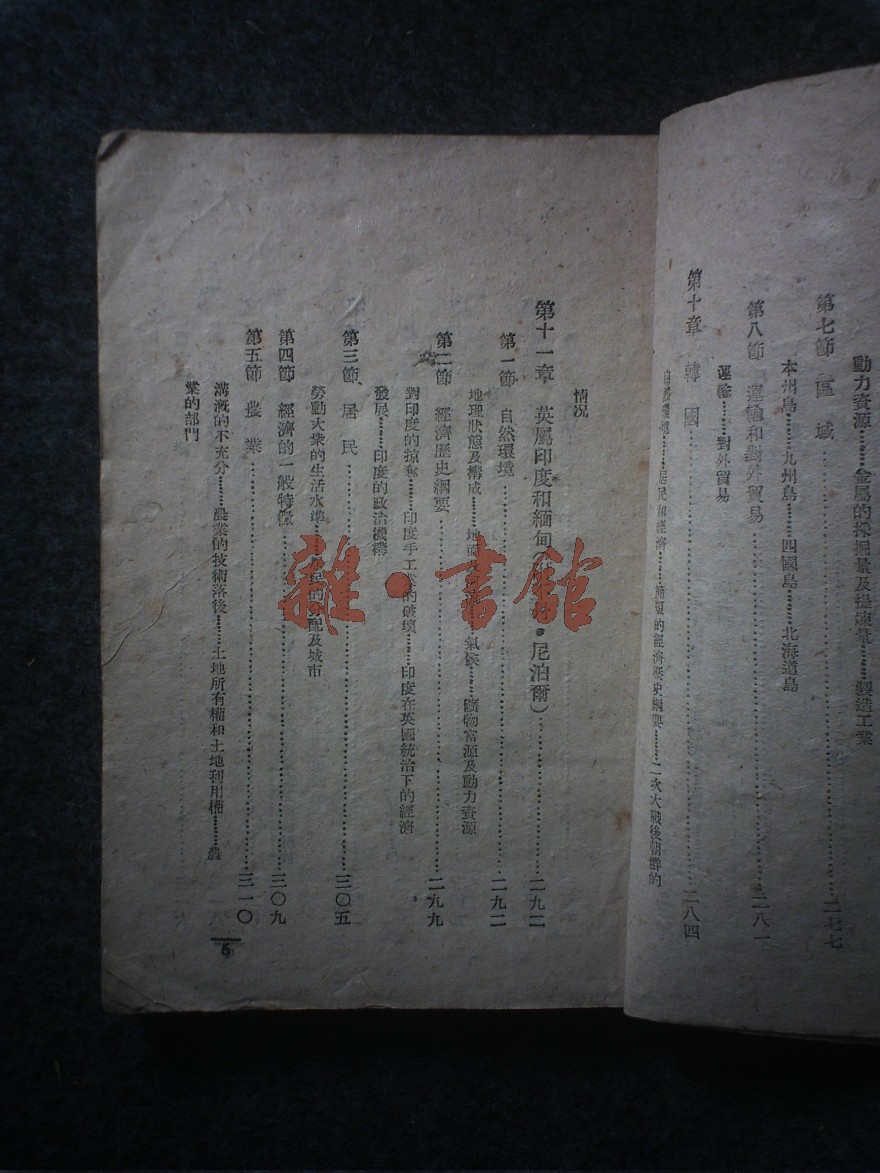 動力資源………金屬的採掘量及提煉量………製造工業
第七節 區域……………二七七
本州島………九州島………四國島………北海道島
第八節 運輸和對外貿易……………二八一
運輸………對外貿易
第十章 韓國……………二八四
居民和經濟………簡短的經濟歷史綱要………二次大戰後朝鮮的
情況
第十一章 英屬印度和緬甸(・尼泊爾)……………二九二
第一節 自然環境……………二九二
地理狀態及構成………地面………氣候………礦物富源及動力資源
第二節 經濟歷史綱要……………二九九
對印度的掠奪………印度手工業的破壞………印度在英國統治下的經濟
發展………印度的政治機構
第三節、居民……………三〇五
勞動大衆的生活水準………居民的分配及城市
第四節 經濟的一般特徵……………三〇九
第五節 農業……………三一〇
溝漑的不充分………農業的技術落後………土地所有權和土地利用權………農
業的部門
5
雜・書館